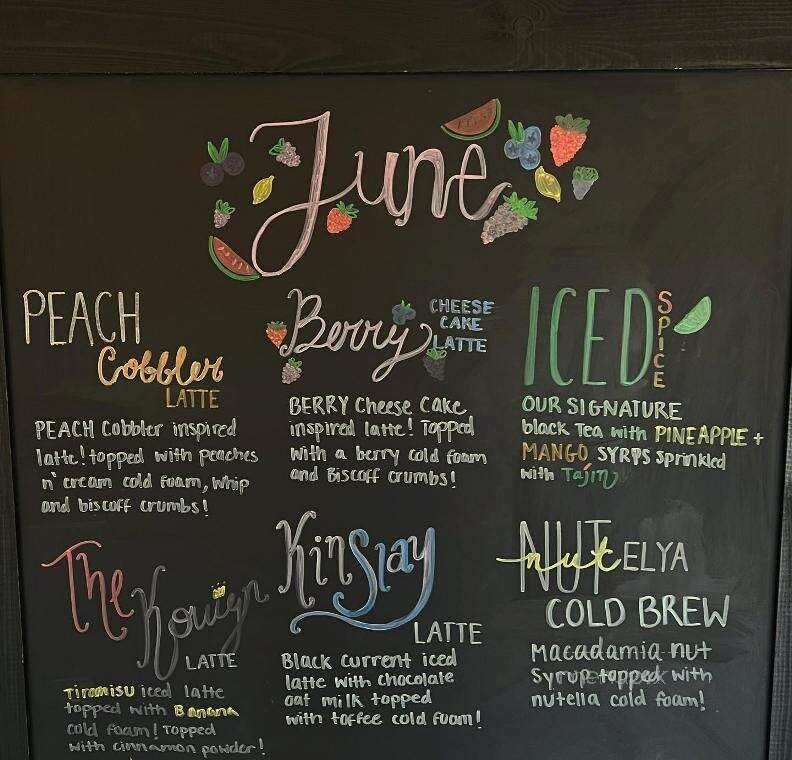 June
PEACH
Cobbler
LATTE
PEACH Cobbler inspired
latte! topped with peaches
n' cream cold foam, whip
and biscoff crumbs!
Berry CHEESE
CAKE
LATTE
BERRY Cheese Cake
inspired latte! Topped
with a berry cold foam
and Biscoff crumbs!
ICED SPICE
OUR SIGNATURE
black Tea with PINEAPPLE +
MANGO SYRPS sprinkled
with Tajin
The
Kouign
LATTE
Tiramisu iced latte
topped with Banana
cold foam! Topped
with cinnamon powder!
KinSlay
LATTE
Black current iced
latte with chocolate
oat milk topped
with toffee cold foam!
NUT nut ELYA
COLD BREW
Macadamia nut
Syrup topped with
nutella cold foam!